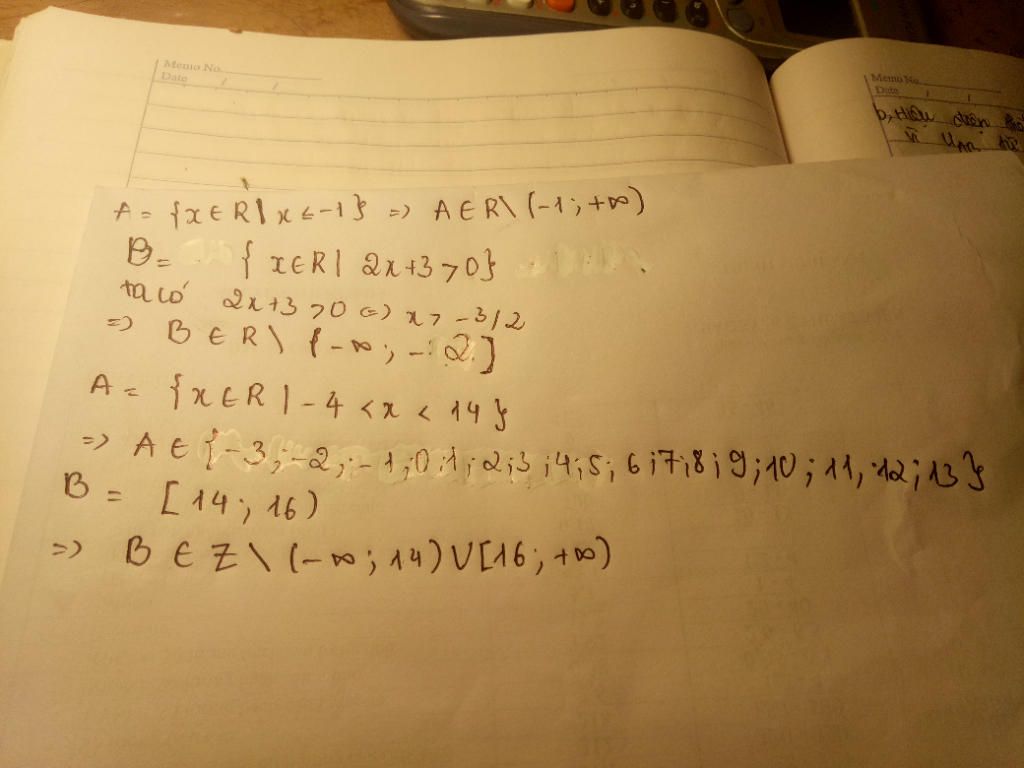 Memo No.
Date / /
Memo No.
Date / /
b, Hiệu điện
vì U_AB
A = {x∈R | x ≤ -1} => A∈R\ (-1; +∞)
B = { x∈R | 2x+3 > 0}
ta có 2x+3 > 0 <=> x > -3/2
=> B ∈ R \ (-∞; - 2]
A = {x∈R | -4 < x < 14}
=> A ∈ {-3; -2; -1; 0; 1; 2; 3; 4; 5; 6; 7; 8; 9; 10; 11, 12; 13}
B = [14; 16)
=> B ∈ Z \ (-∞; 14) ∪ [16; +∞)